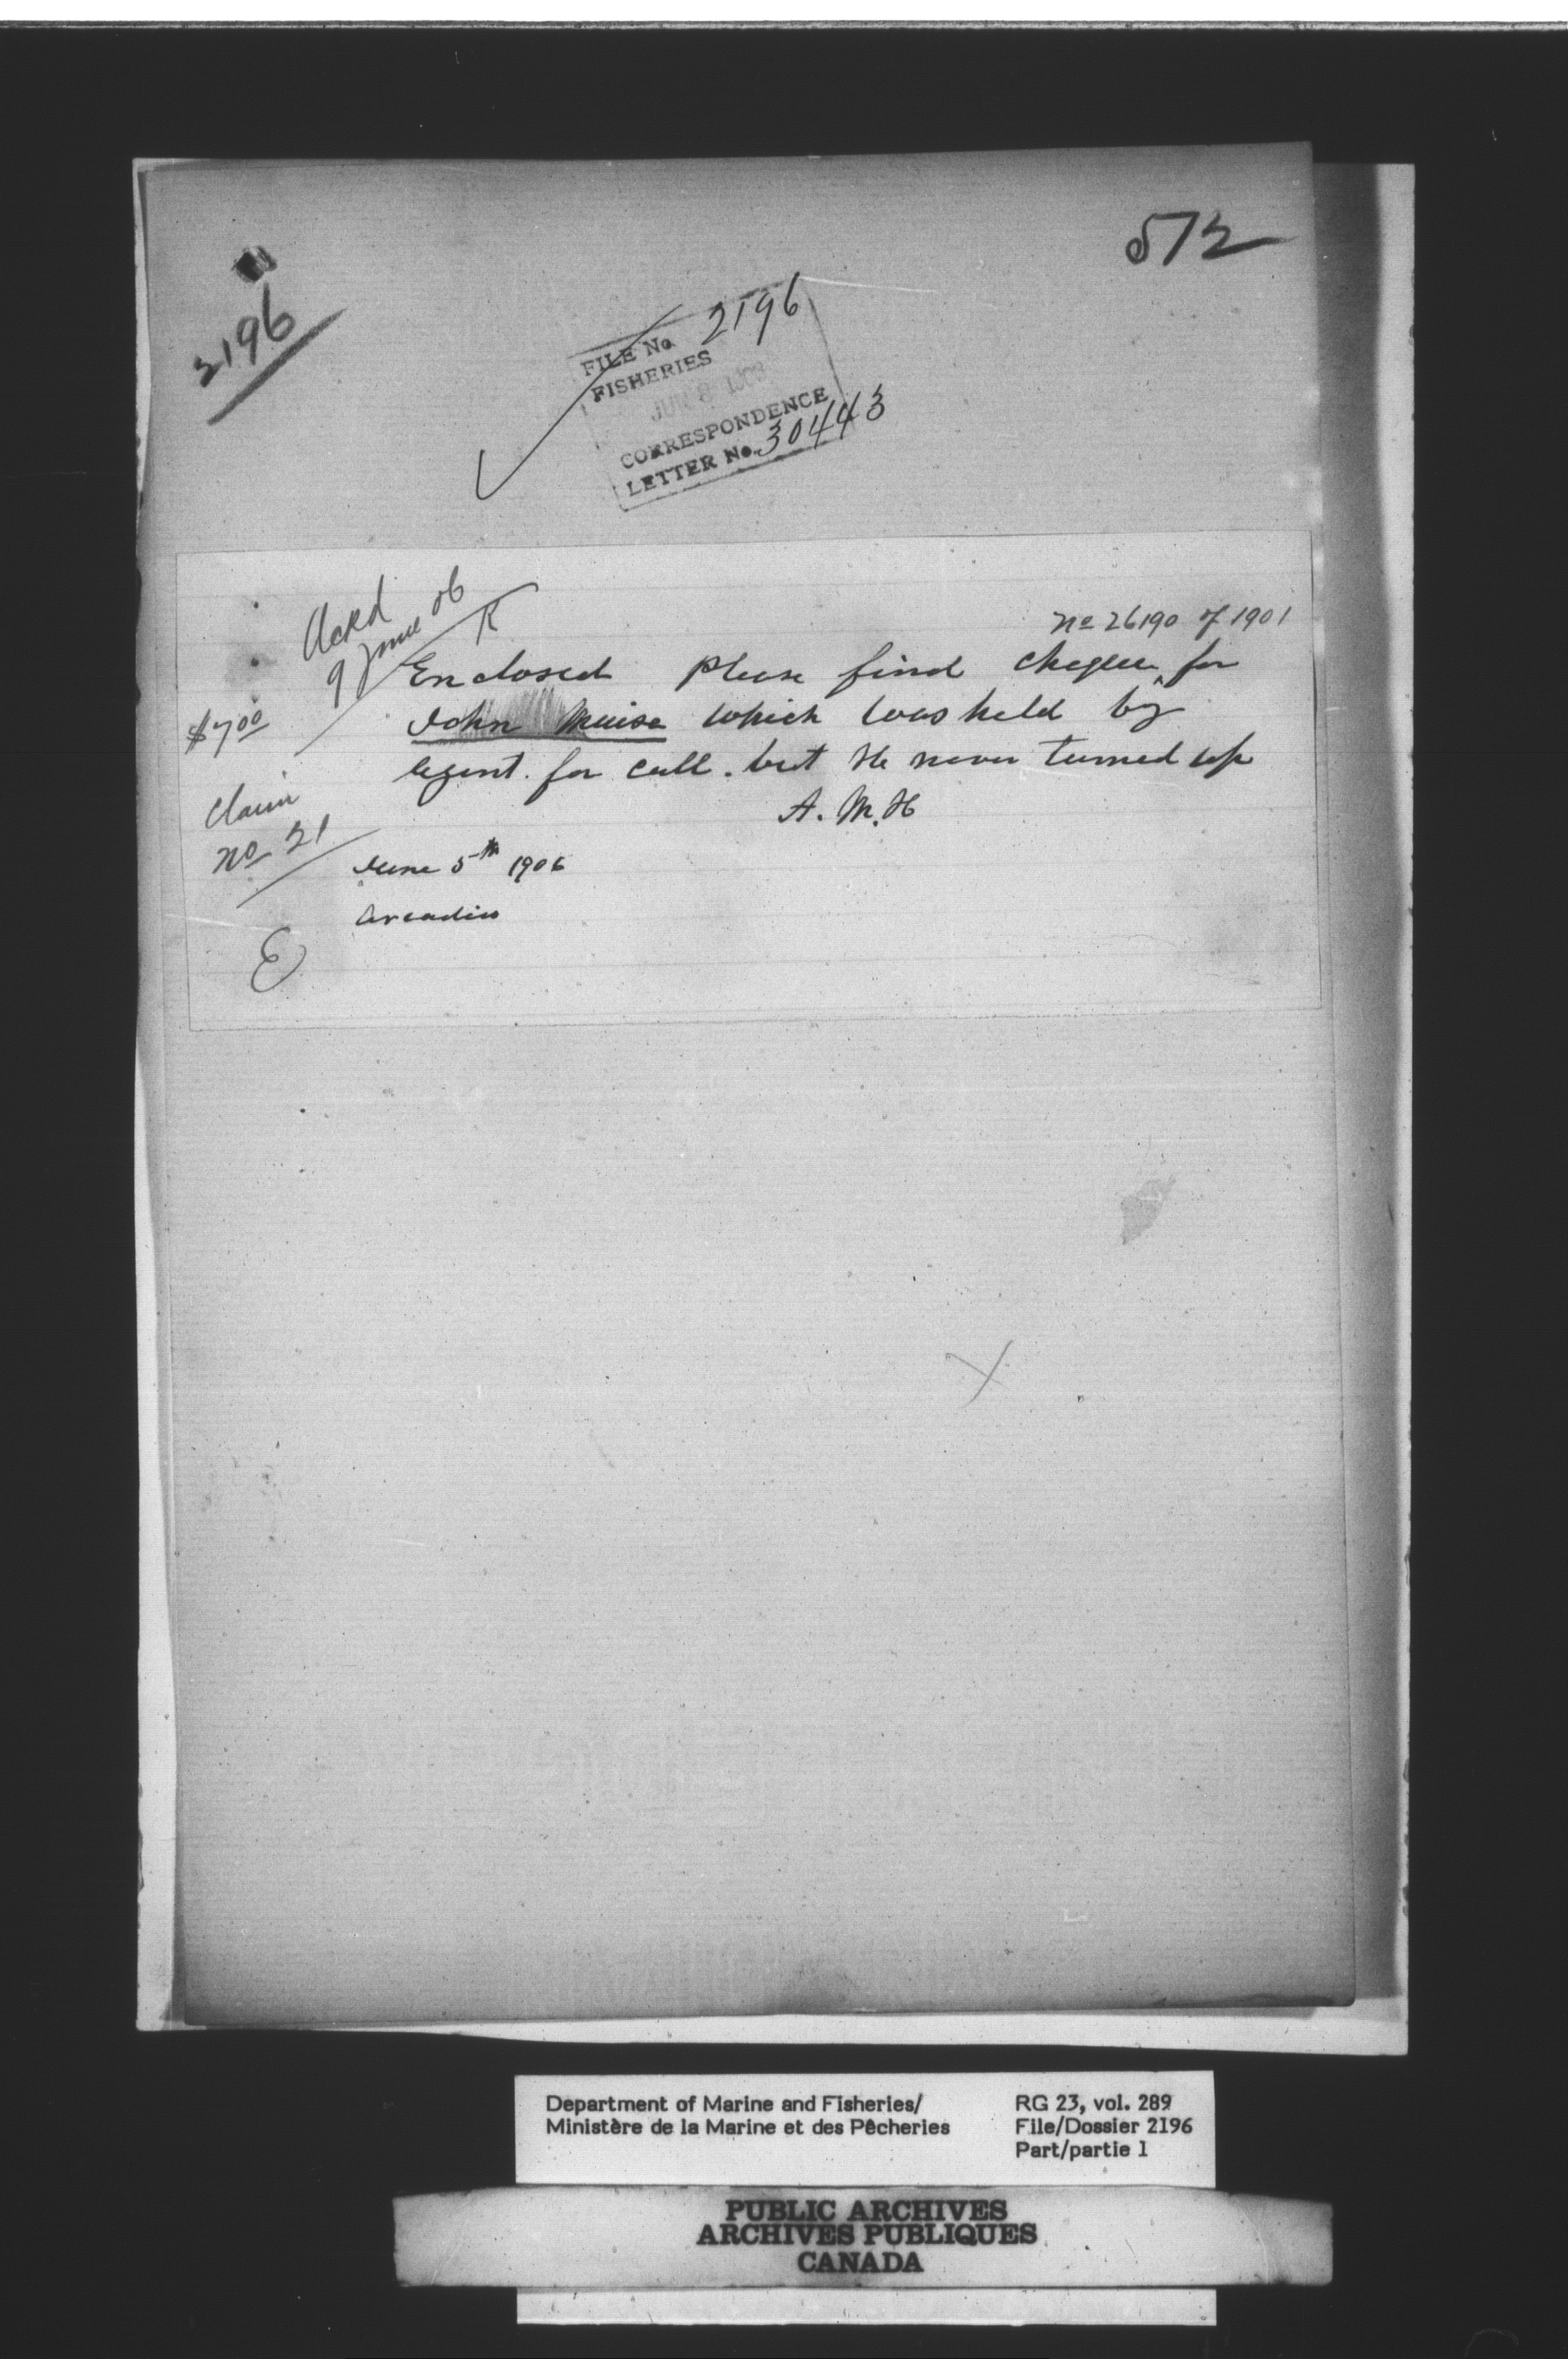 572
2196
FILE No. 2196
FISHERIES
JUN 8 1906
CORRESPONDENCE
LETTER No. 30443
Ackd
9 June 06
R
No 26190 of 1901
Enclosed Please find cheque for
John Muise which was held by
Agent. for call. but He never turned up
A. M. H
$7.00
Claim
No 21
June 5th 1906
Arcadia
E
Department of Marine and Fisheries/
Ministère de la Marine et des Pêcheries
RG 23, vol. 289
File/Dossier 2196
Part/partie 1
PUBLIC ARCHIVES
ARCHIVES PUBLIQUES
CANADA